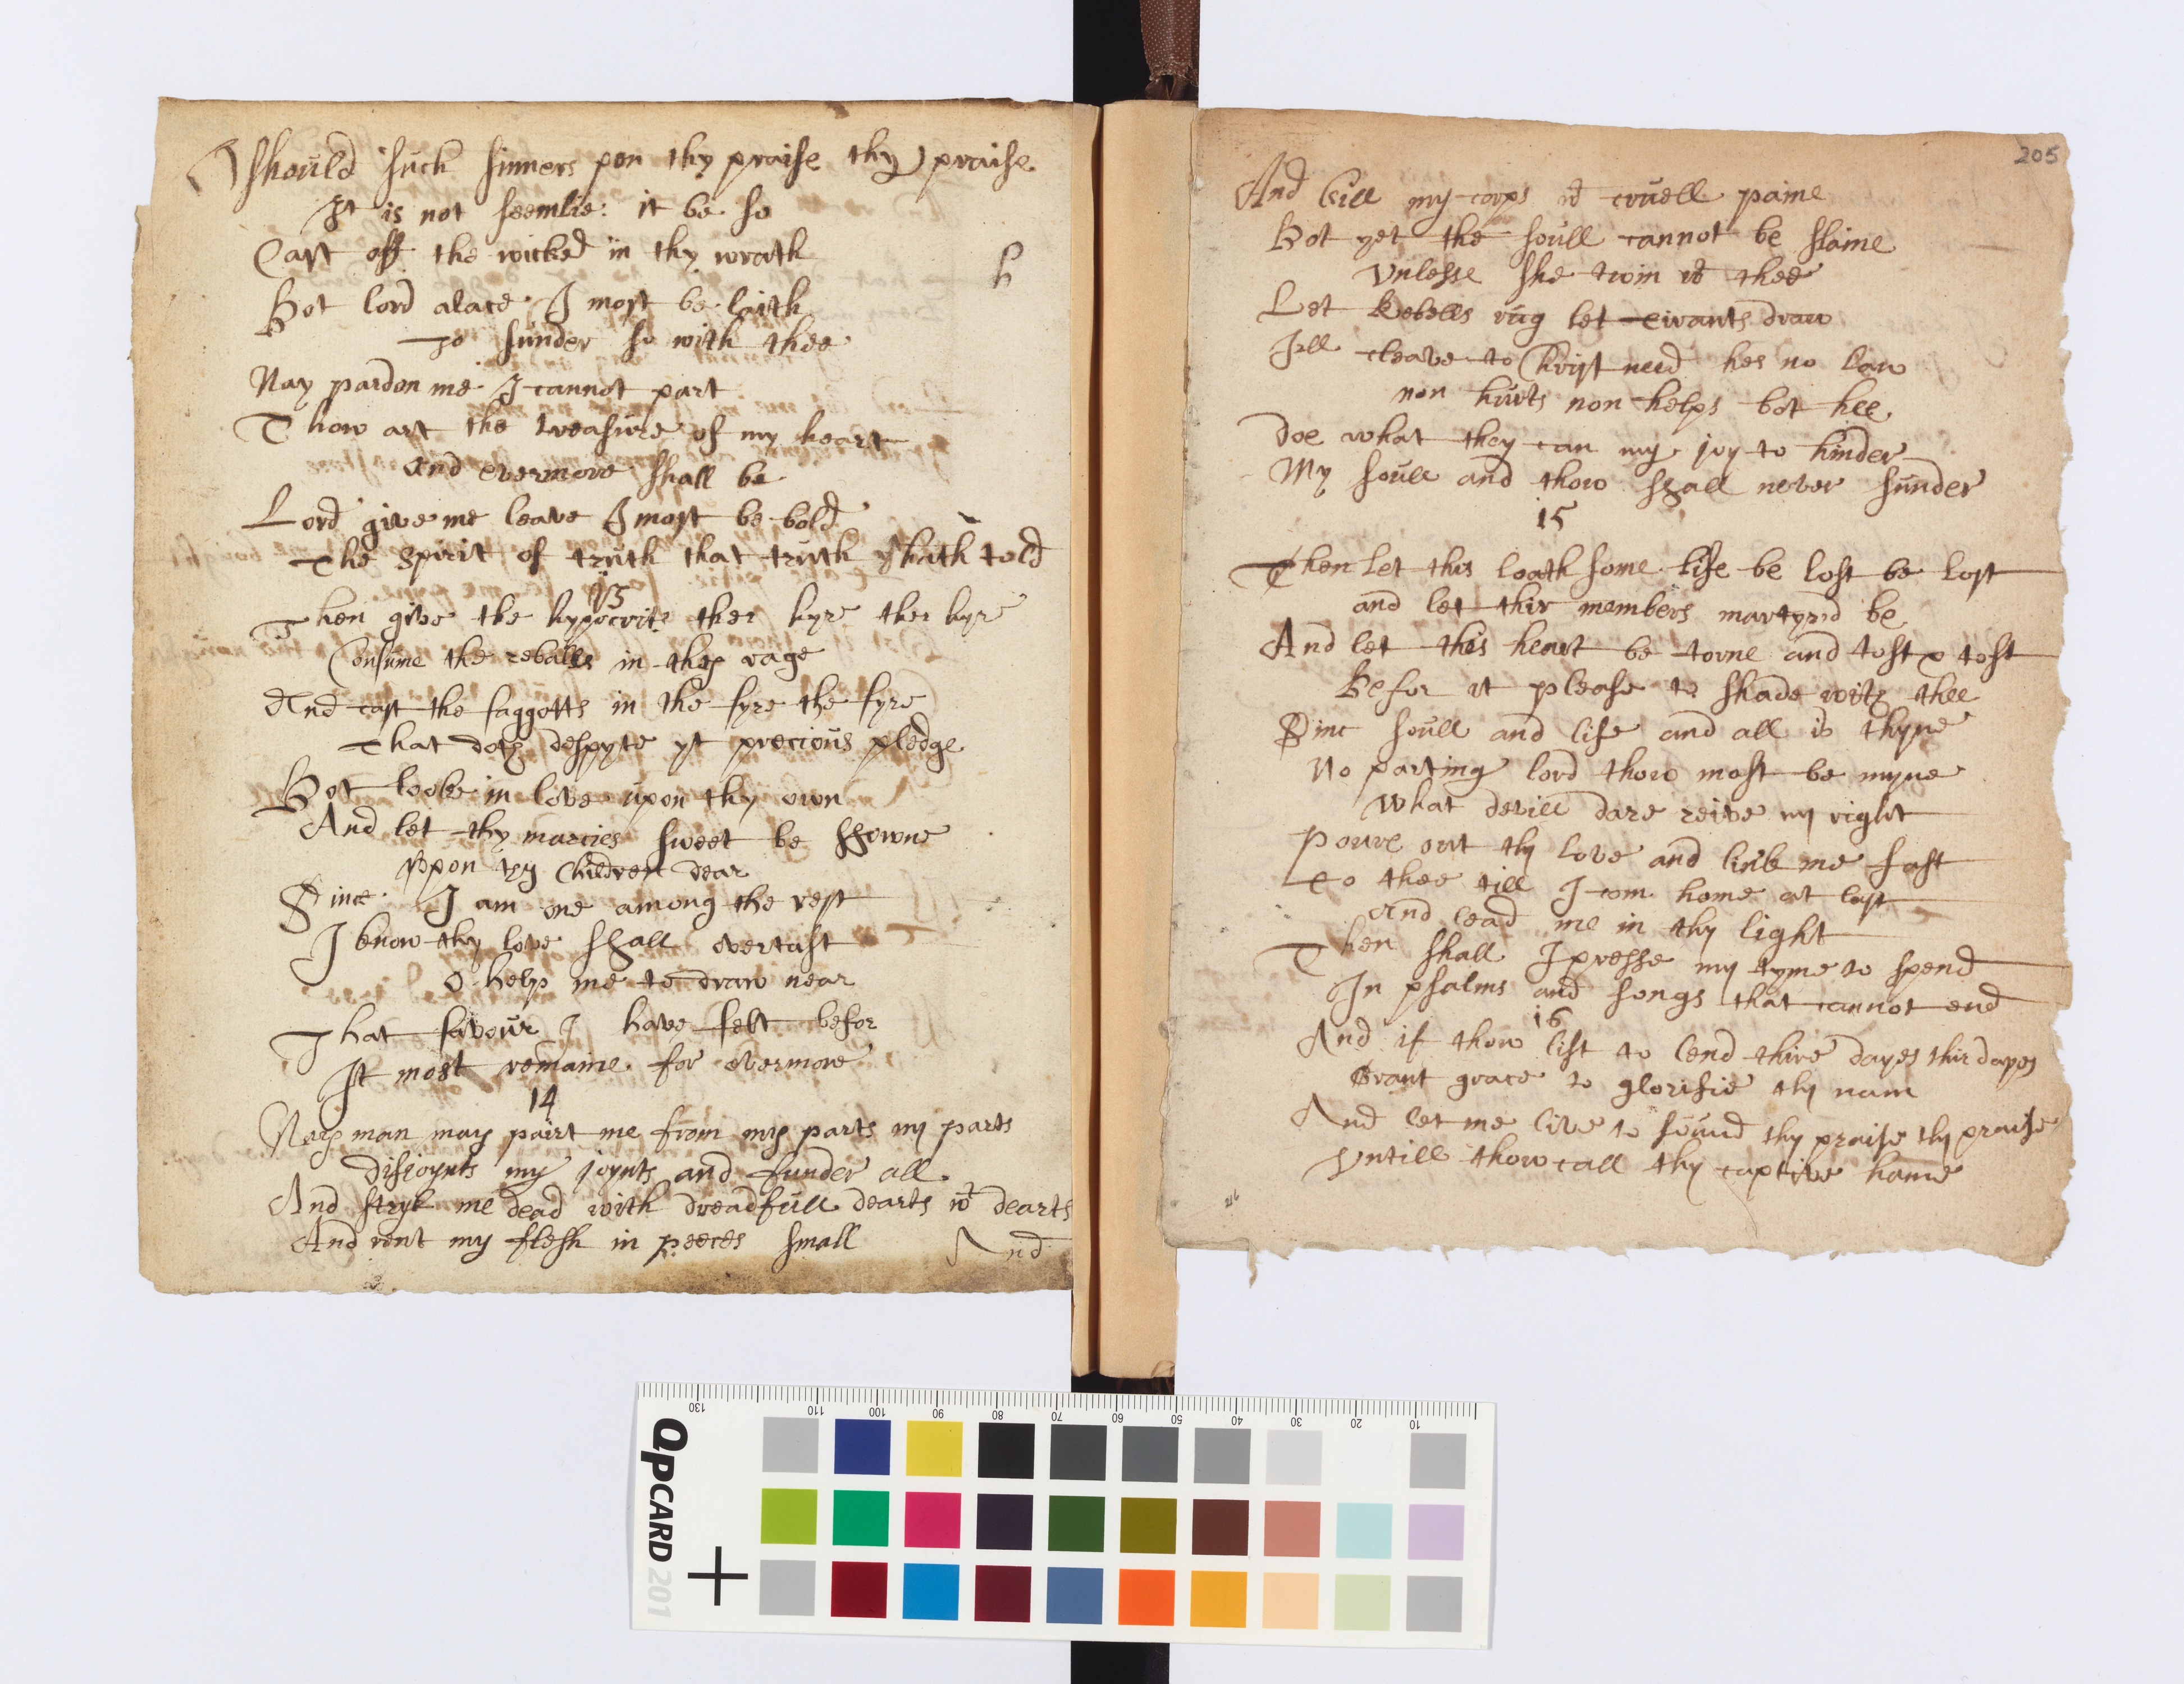 should such sinners pen thy praise thy praise
It is not seemlie it be so
Cast off the wicked in thy wrath
h
Bot lord alace I most be laith
To sunder so with thee
Nay pardon me I cannot part
Thow art the treasure of my heart
and evermore shall be
Lord give me leave I most be bold
The spirit of truth that truth hath told
13
Then give the hypocrite ther hyre ther hyre
Consume the reballs in thy rage
And cast the faggotts in the fyre the fyre
That doth despyte yt precious pledge
Bot looke in love upon thy own
And let thy marcies sweet be showne
Vpon thy Children dear
Since I am one among the rest
I know thy love shall overcast
O help me to draw near
That favour I have felt befor
It most remaine for evermore
14
Nay man may pairt me from my parts my parts
Disjoynts my joynts and sunder all
And stryk me dead with dreadfull dearts wt dearts
And rent my flesh in peeces small
And
205
And kill my corps wt cruell paine
Bot yet the soull cannot be slaine
Vnlesse she twin wt thee
Let Rebells rug let tirants draw
Ill cleave to Christ need hes no law
non hurts non helps bot hee
Doe what they can my joy to hinder
My soull and thow shall never sunder
15
Then let this loathsome life be lost be lost
and let thir members martyrd be
And let this heart be torne and tost & tost
Befor it please to shade with thee
Sinc soull and life and all is thyne
No parting lord thow most be myne
What devill dare reive my right
Powre out thy love and link me fast
To thee till I com home at last
And lead me in thy light
Then shall I presse my tyme to spend
In psalms and songs that cannot end
16
And if thow list to lend thire dayes thir dayes
Grant grace to glorifie thy nam
And let me live to sound thy praise thy praise
Vntill thow call thy captive hame
QPCARD 201
130 110 100 90 80 70 60 50 40 30 20 10